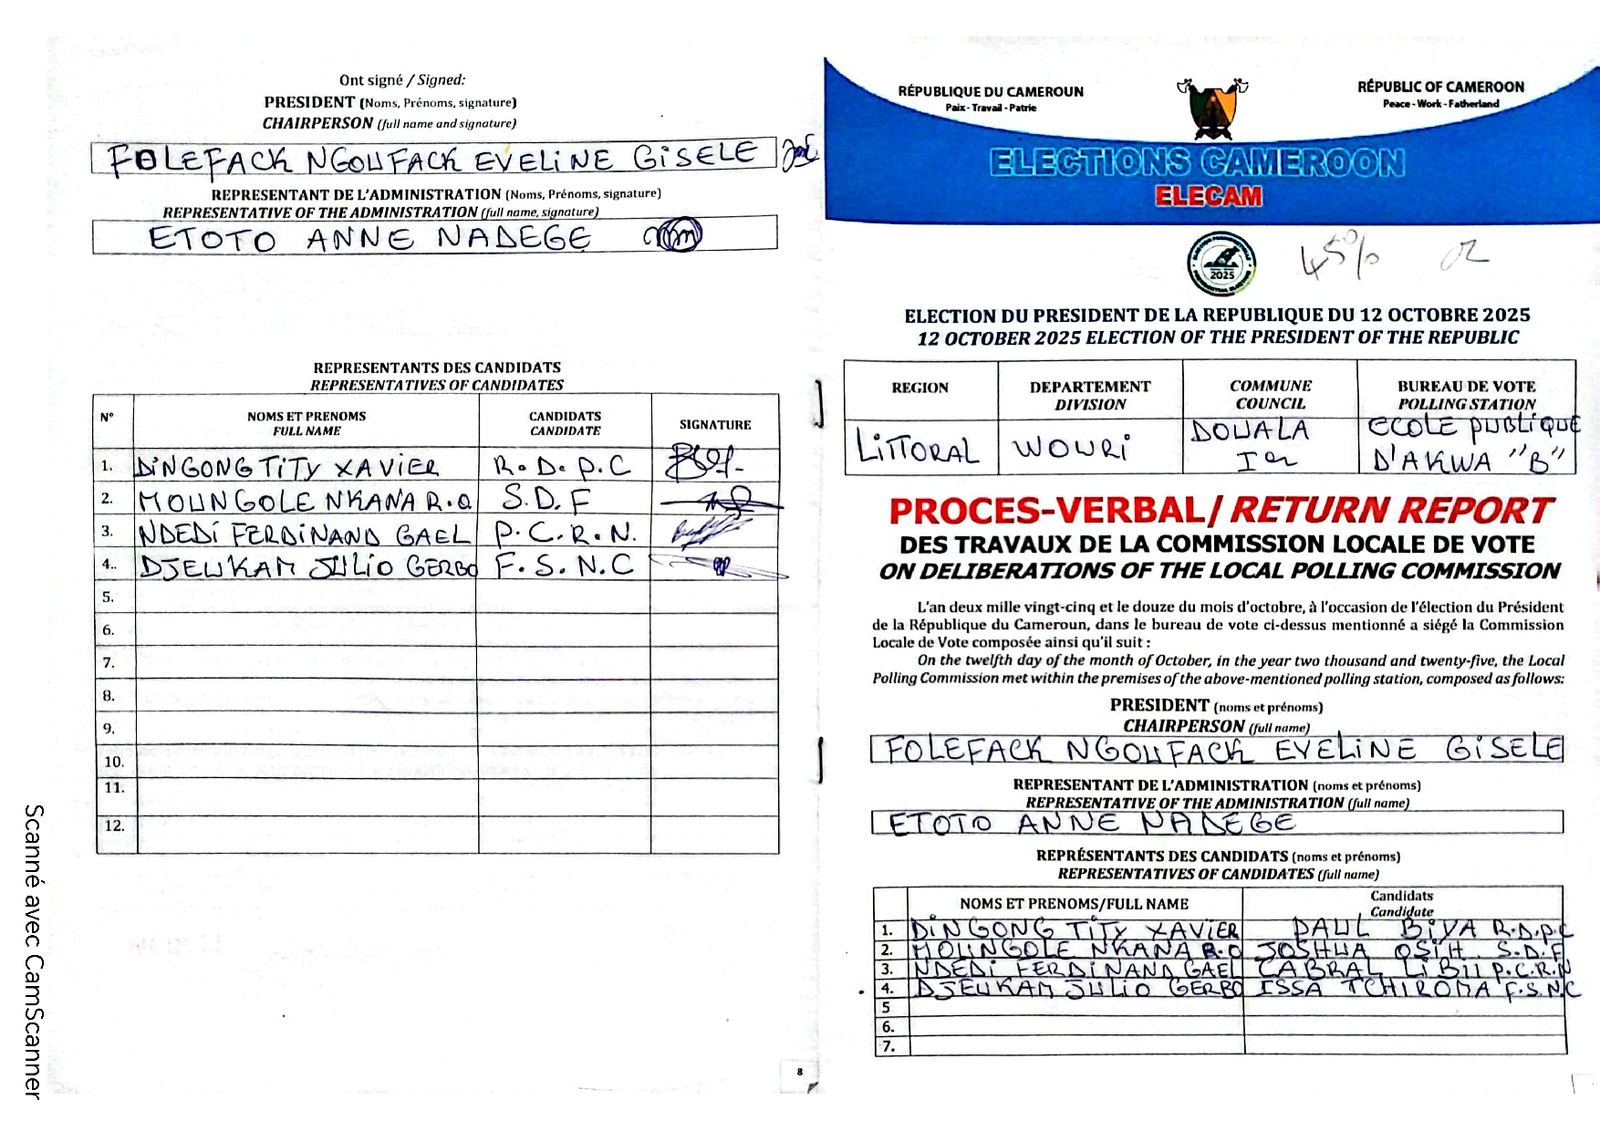 Ont signé / Signed:
PRESIDENT (Noms, Prénoms, signature)
CHAIRPERSON (full name and signature)
FOLEFACK NGOUFACK EVELINE GISELE
REPRESENTANT DE L'ADMINISTRATION (Noms, Prénoms, signature)
REPRESENTATIVE OF THE ADMINISTRATION (full name, signature)
ETOTO ANNE NADEGE
REPRESENTANTS DES CANDIDATS
REPRESENTATIVES OF CANDIDATES
N° NOMS ET PRENOMS FULL NAME CANDIDATS CANDIDATE SIGNATURE
1. DINGONG TITY XAVIER R.D.P.C
2. MOUNGOLE NKANA R.O S.D.F
3. NDEDI FERDINAND GAEL P.C.R.N.
4.. DJEUKAM JULIO GERBO F.S.N.C
5.
6.
7.
8.
9.
10.
11.
12.
8
Scanné avec CamScanner
RÉPUBLIQUE DU CAMEROUN
Paix - Travail - Patrie
RÉPUBLIC OF CAMEROON
Peace - Work - Fatherland
ELECTIONS CAMEROON
ELECAM
2025
45%
ELECTION DU PRESIDENT DE LA REPUBLIQUE DU 12 OCTOBRE 2025
12 OCTOBER 2025 ELECTION OF THE PRESIDENT OF THE REPUBLIC
REGION DEPARTEMENT DIVISION COMMUNE COUNCIL BUREAU DE VOTE POLLING STATION
LITTORAL WOURI DOUALA Ier ECOLE PUBLIQUE D'AKWA "B"
PROCES-VERBAL / RETURN REPORT
DES TRAVAUX DE LA COMMISSION LOCALE DE VOTE
ON DELIBERATIONS OF THE LOCAL POLLING COMMISSION
L'an deux mille vingt-cinq et le douze du mois d'octobre, à l'occasion de l'élection du Président
de la République du Cameroun, dans le bureau de vote ci-dessus mentionné a siégé la Commission
Locale de Vote composée ainsi qu'il suit :
On the twelfth day of the month of October, in the year two thousand and twenty-five, the Local
Polling Commission met within the premises of the above-mentioned polling station, composed as follows:
PRESIDENT (noms et prénoms)
CHAIRPERSON (full name)
FOLEFACK NGOUFACK EVELINE GISELE
REPRESENTANT DE L'ADMINISTRATION (noms et prénoms)
REPRESENTATIVE OF THE ADMINISTRATION (full name)
ETOTO ANNE NADEGE
REPRÉSENTANTS DES CANDIDATS (noms et prénoms)
REPRESENTATIVES OF CANDIDATES (full name)
NOMS ET PRENOMS/FULL NAME Candidats Candidate
1. DINGONG TITY XAVIER PAUL BIYA R.D.P.C
2. MOUNGOLE NKANA R.O JOSHUA OSIH S.D.F
3. NDEDI FERDINAND GAEL CABRAL LIBII P.C.R.N
4. DJEUKAM JULIO GERBO ISSA TCHIROMA F.S.N.C
5
6.
7.